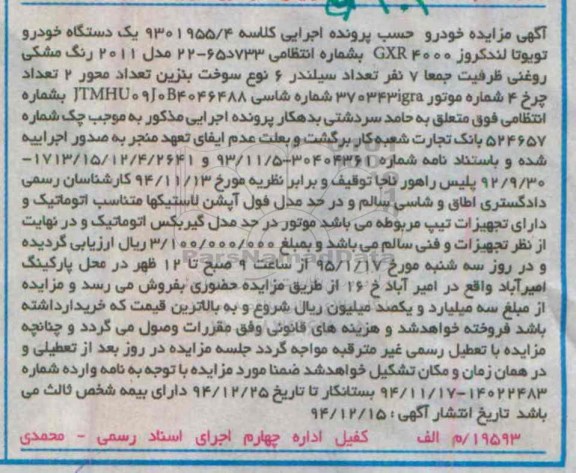 آگهی مزایده خودرو حسب پرونده اجرایی کلاسه ۹۳۰۱۹۵۵/۴ یک دستگاه خودرو
تویوتا لندکروز GXR ۴۰۰۰ بشماره انتظامی ۷۳۳د۶۵-۲۲ مدل ۲۰۱۱ رنگ مشکی
روغنی ظرفیت جمعا ۷ نفر تعداد سیلندر ۶ نوع سوخت بنزین تعداد محور ۲ تعداد
چرخ ۴ شماره موتور ۳۷۰۳۴۳igra شماره شاسی JTMHU۰۹J۰B۴۰۴۶۴۸۸ بشماره
انتظامی فوق متعلق به حامد سردشتی بدهکار پرونده اجرایی مذکور به موجب چک شماره
۵۲۴۶۵۷ بانک تجارت شعبه کار برگشت و بعلت عدم ایفای تعهد منجر به صدور اجراییه
شده و باستناد نامه شماره ۳۰۴۰۴۳۶۱-۹۳/۱۱/۵ و ۱۷۱۳/۱۵/۱۲/۴/۲۶۴۱-
۹۲/۹/۳۰ پلیس راهور ناجا توقیف و برابر نظریه مورخ ۹۴/۱۱/۱۳ کارشناسان رسمی
دادگستری اطاق و شاسی سالم و در حد مدل فول آپشن لاستیکها متناسب اتوماتیک و
دارای تجهیزات تیپ مربوطه می باشد موتور در حد مدل گیربکس اتوماتیک و در نهایت
از نظر تجهیزات و فنی سالم می باشد و بمبلغ ۳/۱۰۰/۰۰۰/۰۰۰ ریال ارزیابی گردیده
و در روز سه شنبه مورخ ۹۵/۱/۱۷ از ساعت ۹ صبح تا ۱۲ ظهر در محل پارکینگ
امیرآباد واقع در امیر آباد خ ۱۶ از طریق مزایده حضوری بفروش می رسد و مزایده
از مبلغ سه میلیارد و یکصد میلیون ریال شروع و به بالاترین قیمت که خریدارداشته
باشد فروخته خواهدشد و هزینه های قانونی وفق مقررات وصول می گردد و چنانچه
مزایده با تعطیل رسمی غیر مترقبه مواجه گردد جلسه مزایده در روز بعد از تعطیلی و
در همان زمان و مکان تشکیل خواهدشد ضمنا مورد مزایده با توجه به نامه وارده شماره
۱۴۰۲۲۴۸۳-۹۴/۱۱/۱۷ بستانکار تا تاریخ ۹۴/۱۲/۲۵ دارای بیمه شخص ثالث می
باشد تاریخ انتشار آگهی : ۹۴/۱۲/۱۵
۱۹۵۹۳/م الف کفیل اداره چهارم اجرای اسناد رسمی - محمدی
ParsNamadData